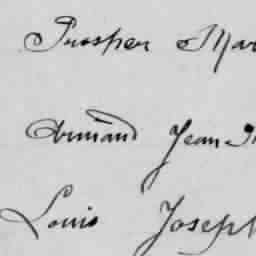 Prosper Mar
Armand Jean
Louis Joseph